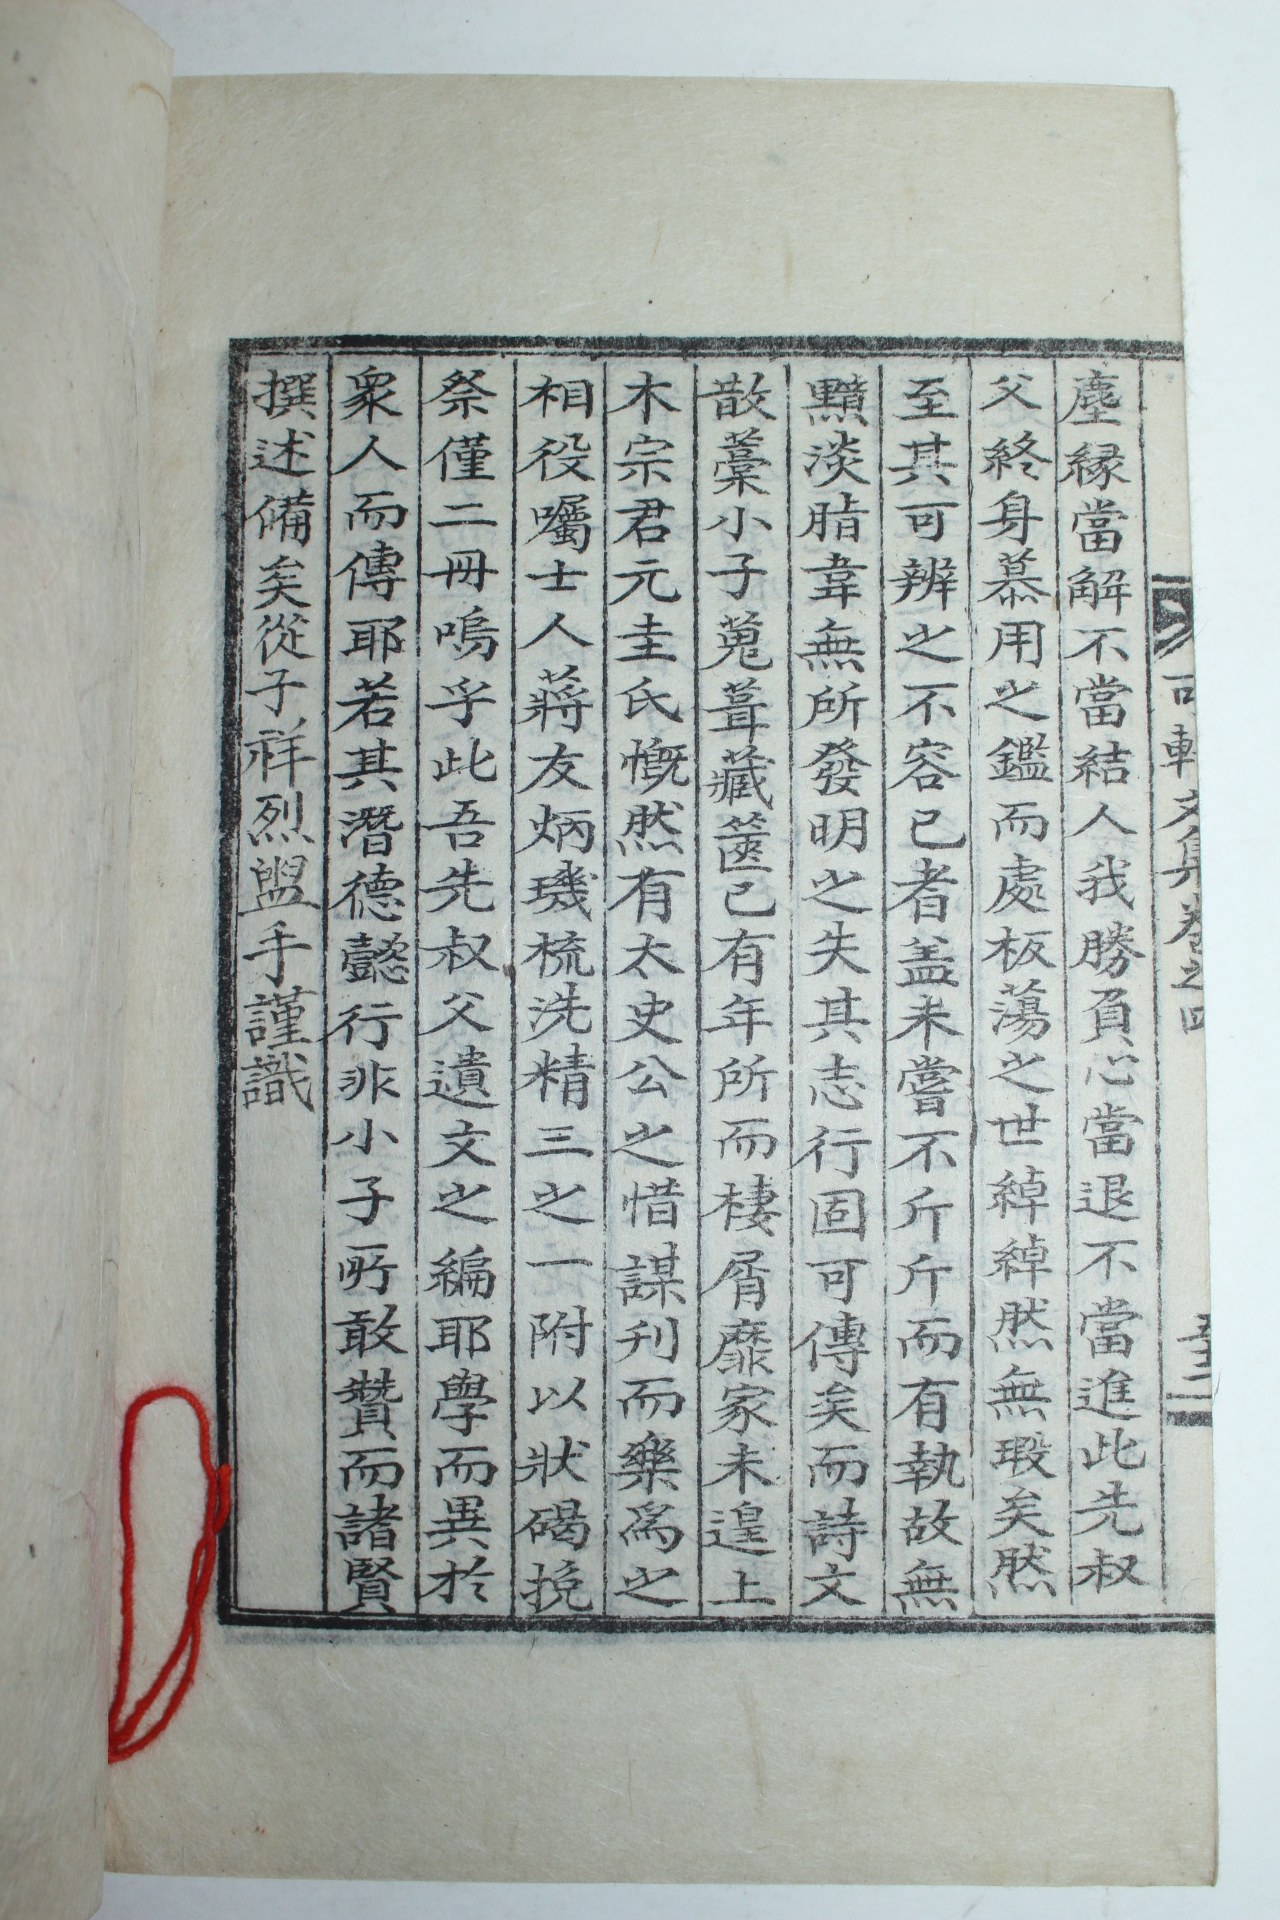 塵緣當解不當結人我勝負心當退不當進此先叔
父終身慕用之鑑而處板蕩之世綽綽然無瑕矣然
至其可辨之不容已者盖未嘗不斤斤而有執故無
黯淡脂韋無所發明之失其志行固可傳矣而詩文
散藁小子蒐葺藏篋已有年所而棲屑靡家未遑上
木宗君元圭氏慨然有太史公之惜謀刊而樂爲之
相役囑士人蔣友炳璣梳洗精三之一附以狀碣挽
祭僅二冊嗚乎此吾先叔父遺文之編耶學而異於
衆人而傳耶若其潛德懿行非小子所敢贊而諸賢
撰述備矣從子祥烈盥手謹識
可軒文集卷之四